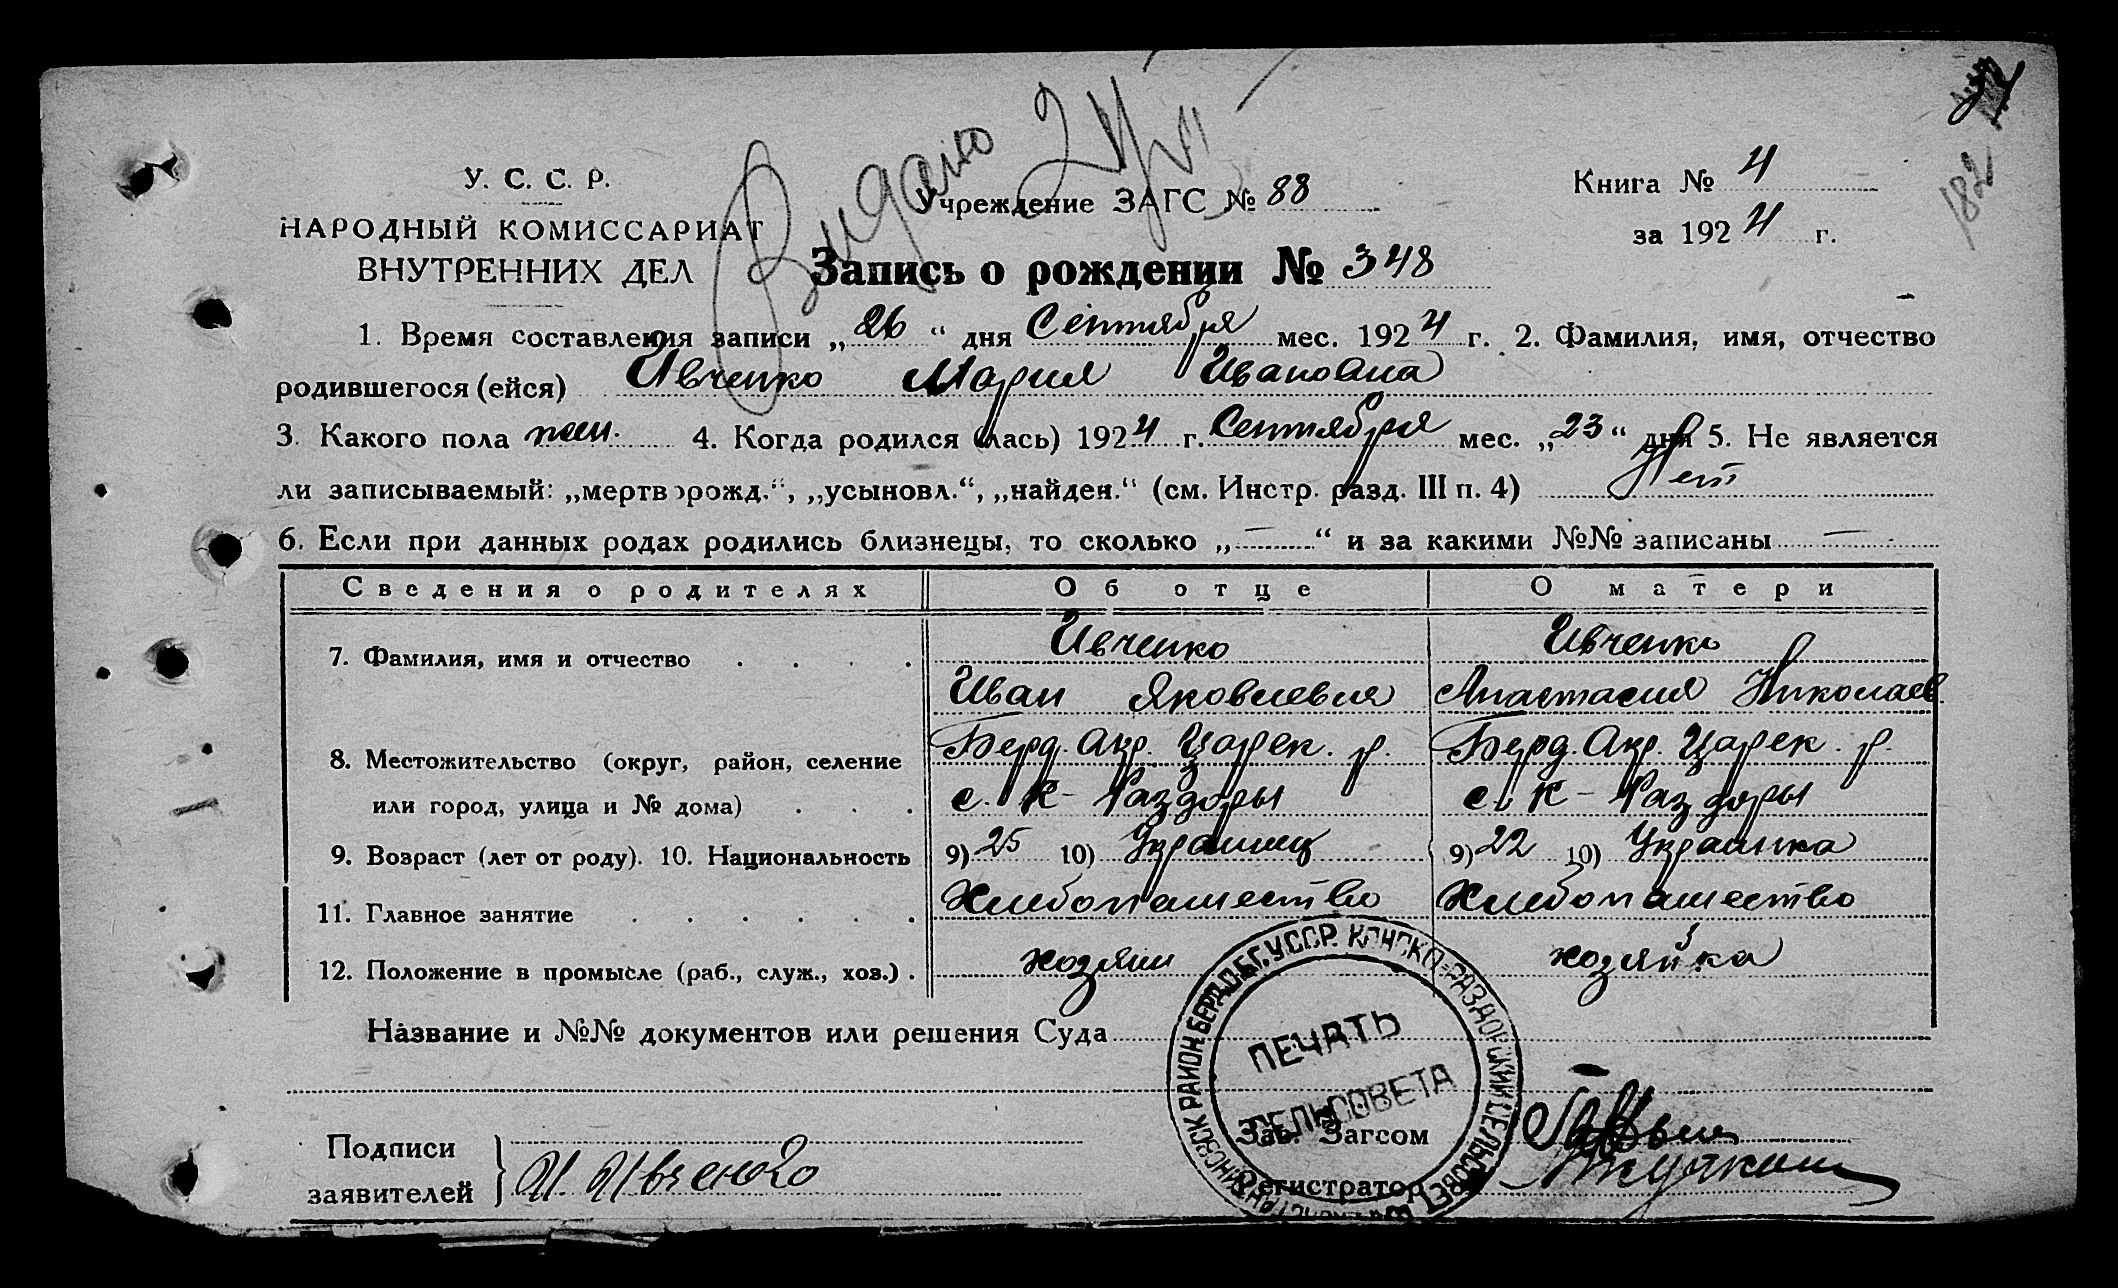 34
182
У. С. С. Р.
НАРОДНЫЙ КОМИССАРИАТ
ВНУТРЕННИХ ДЕЛ
Видано
Учреждение ЗАГС № 88
Книга № 4
за 1924 г.
Запись о рождении № 348
1. Время составления записи „26“ дня Сентября мес. 1924 г. 2. Фамилия, имя, отчество
родившегося (ейся) Ивченко Мария Ивановна
3. Какого пола жен. 4. Когда родился (лась) 1924 г. Сентября мес. „23“ дня 5. Не является
ли записываемый: „мертворожд.“, „усыновл.“, „найден.“ (см. Инстр. разд. III п. 4) Нет
6. Если при данных родах родились близнецы, то сколько „—“ и за какими №№ записаны —
Сведения о родителях Об отце О матери
7. Фамилия, имя и отчество . . . . Ивченко Ивченко
Иван Яковлевич Анастасия Николаев.
8. Местожительство (округ, район, селение Берд. Окр. Царек. р. Берд. Окр. Царек. р.
или город, улица и № дома) . . . с. К-Раздоры с. К-Раздоры
9. Возраст (лет от роду). 10. Национальность 9) 25 10) Украинец 9) 22 10) Украинка
11. Главное занятие . . . . . . Хлебопашество Хлебопашество
12. Положение в промысле (раб., служ., хоз.) . хозяин хозяйка
Название и №№ документов или решения Суда
ПЕЧАТЬ
СЕЛЬСОВЕТА
РАЙОН. БЕРД. ОБ. Г. УССР. КОНСКО-РАЗДОРСКИЙ СЕЛЬСОВЕТ
Подписи
заявителей
И Ивченко
Зав. Загсом
Регистратор